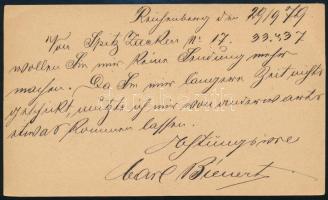 Reichenberg den 29/9 79
Von Spitz Zacken No. 17. 33.337
wollen Sie mir keine Sendung mehr
machen. Da Sie mir längere Zeit nichts
geschickt, müßte ich mir von anderwärts
etwas kommen lassen.
Achtungsvoll
Carl Bienert